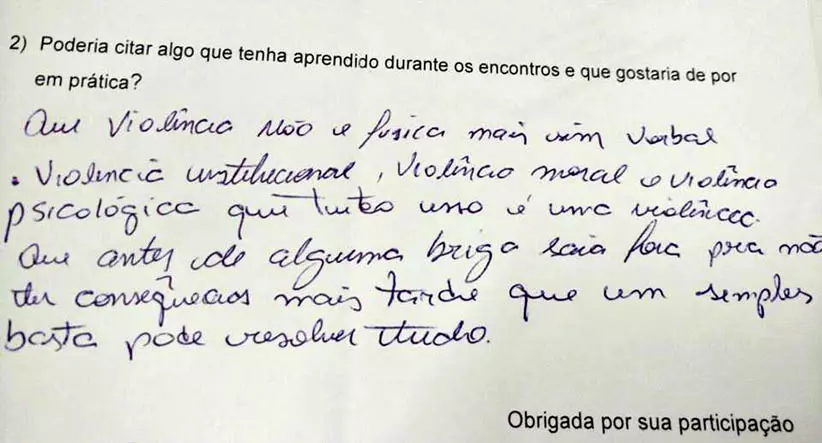 2) Poderia citar algo que tenha aprendido durante os encontros e que gostaria de por
em prática?
Que Violência não é física mais sim Verbal
. Violencia institucional, Violência moral e violência
psicológica que tudo isso é uma violência.
Que antes de alguma briga saia fora pra não
ter consequecias mais tarde que um simples
basta pode resolver tudo.
Obrigada por sua participação